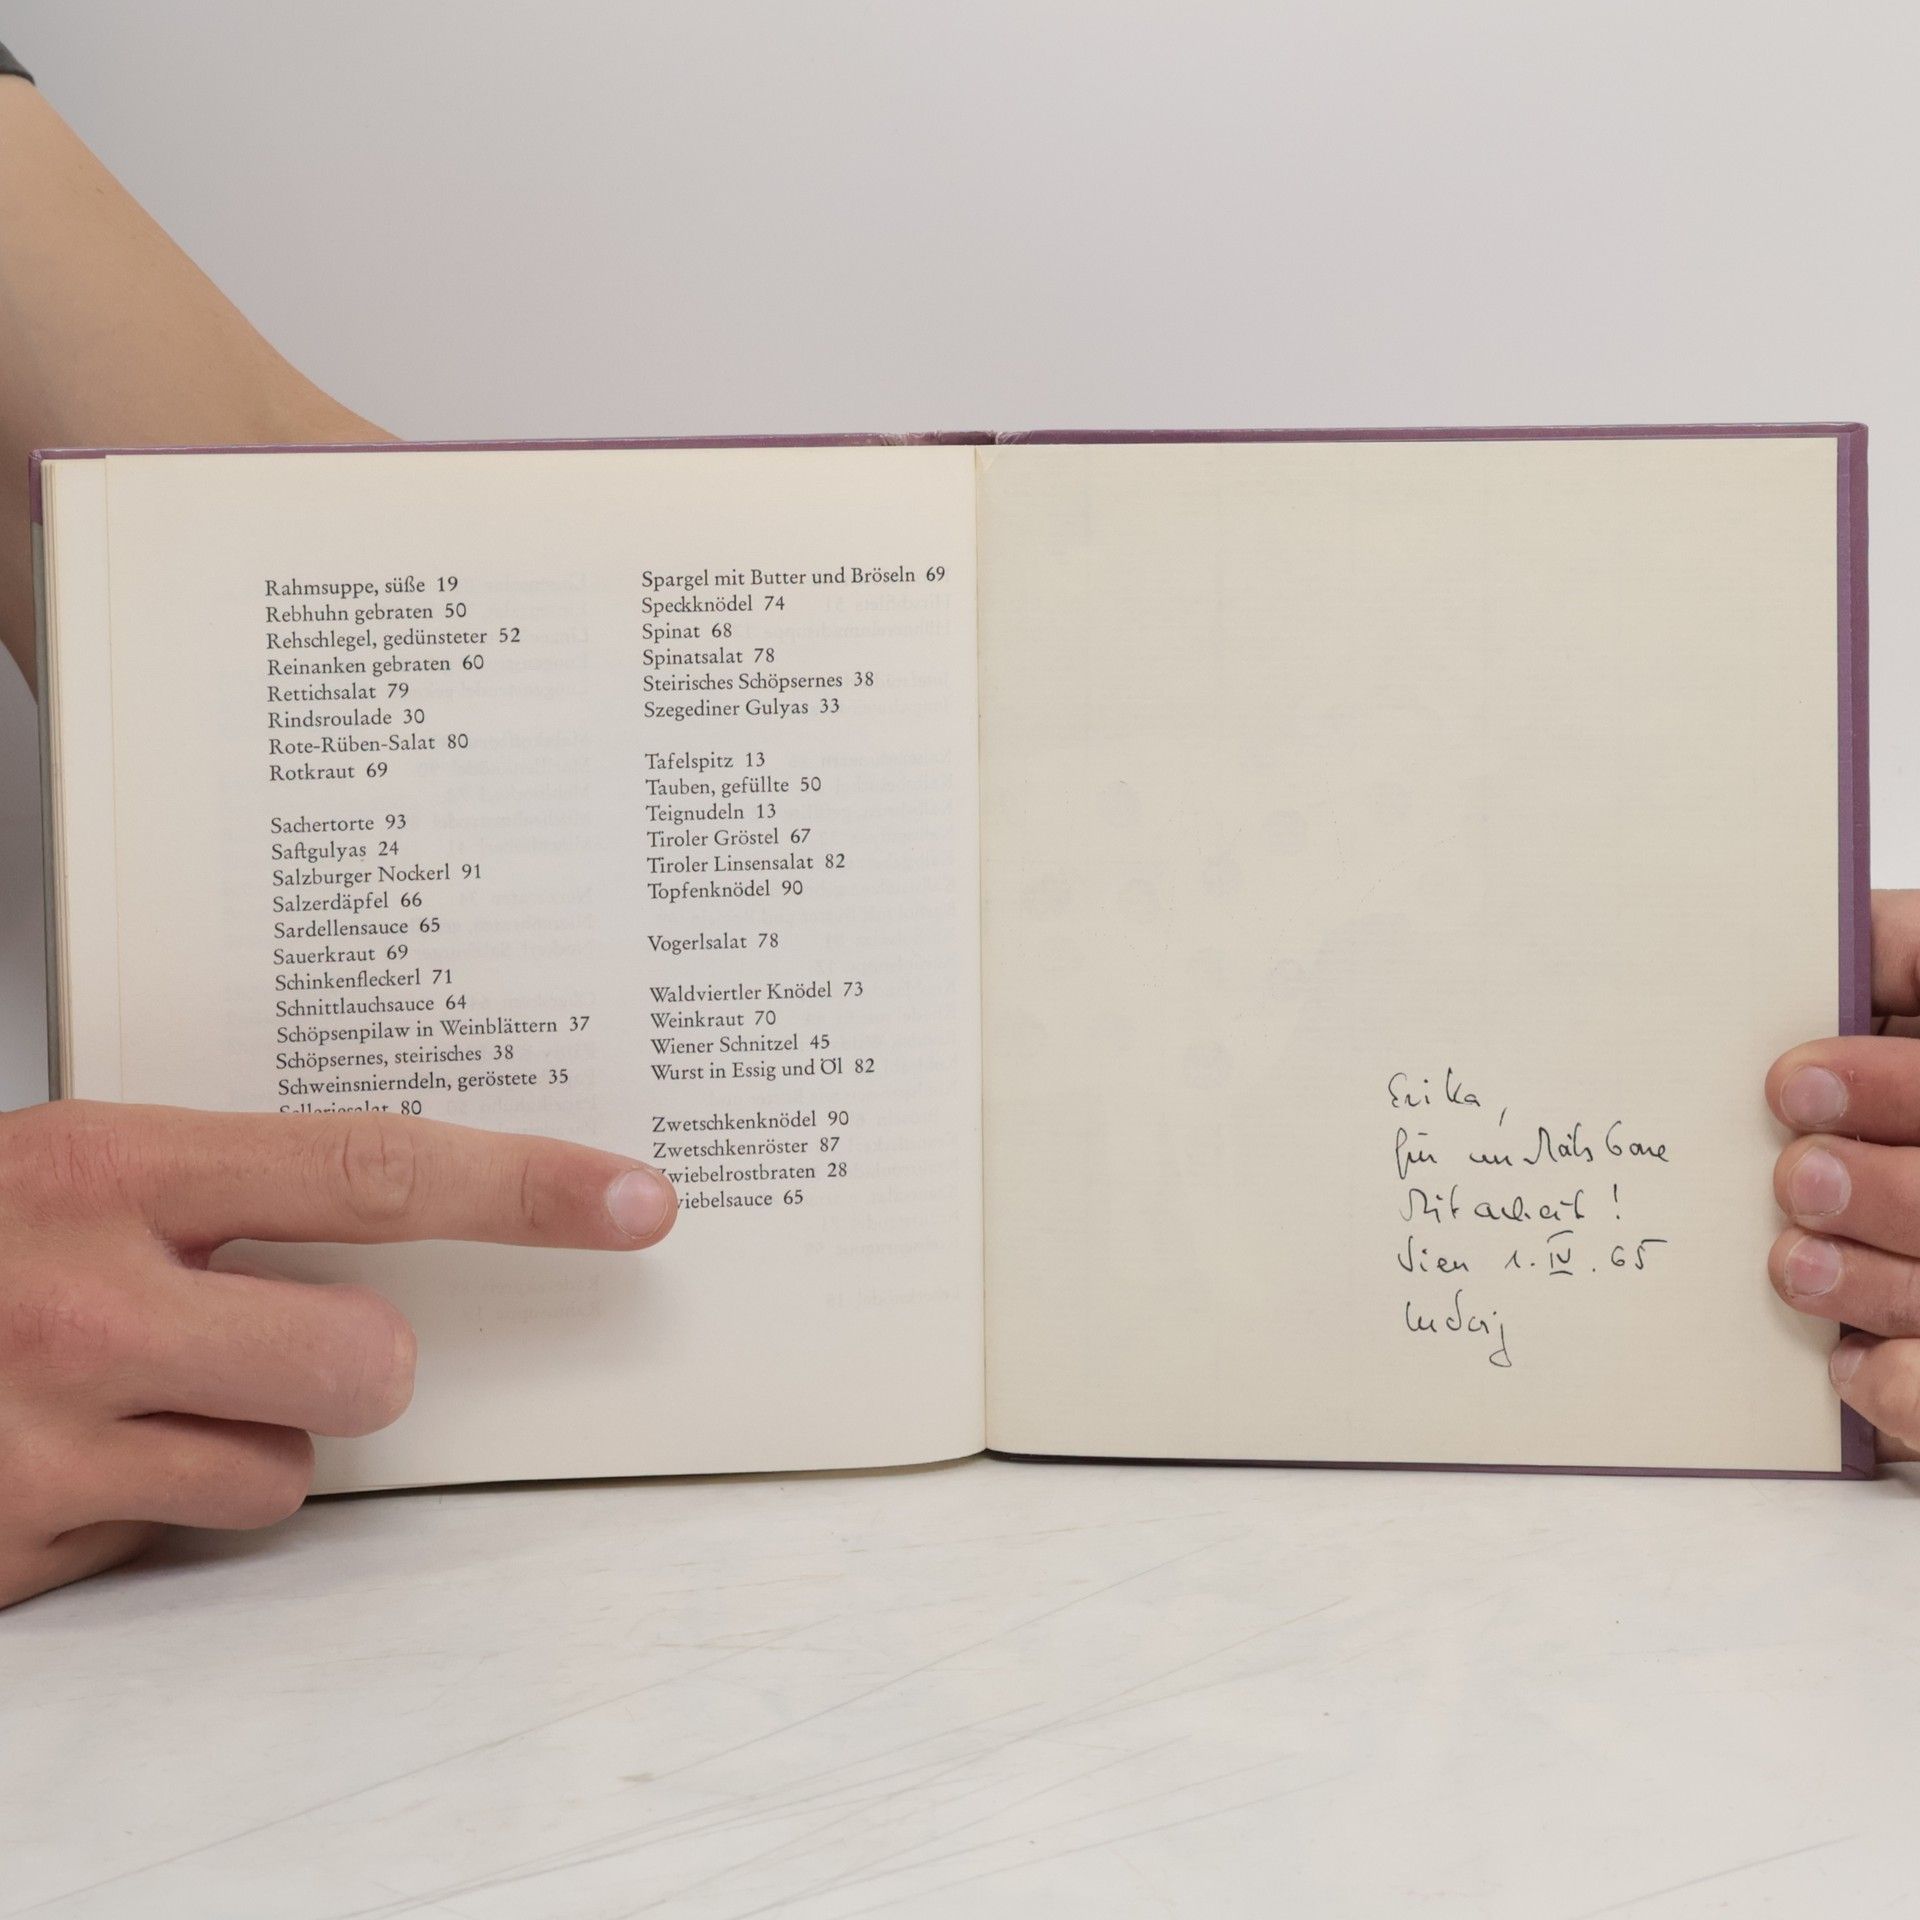 Rahmsuppe, süße 19
Rebhuhn gebraten 50
Rehschlegel, gedünsteter 52
Reinanken gebraten 60
Rettichsalat 79
Rindsroulade 30
Rote-Rüben-Salat 80
Rotkraut 69
Sachertorte 93
Saftgulyas 24
Salzburger Nockerl 91
Salzerdäpfel 66
Sardellensauce 65
Sauerkraut 69
Schinkenfleckerl 71
Schnittlauchsauce 64
Schöpsenpilaw in Weinblättern 37
Schöpsernes, steirisches 38
Schweinsnierndeln, geröstete 35
Selleriesalat 80
Spargel mit Butter und Bröseln 69
Speckknödel 74
Spinat 68
Spinatsalat 78
Steirisches Schöpsernes 38
Szegediner Gulyas 33
Tafelspitz 13
Tauben, gefüllte 50
Teignudeln 13
Tiroler Gröstel 67
Tiroler Linsensalat 82
Topfenknödel 90
Vogerlsalat 78
Waldviertler Knödel 73
Weinkraut 70
Wiener Schnitzel 45
Wurst in Essig und Öl 82
Zwetschkenknödel 90
Zwetschkenröster 87
wiebelrostbraten 28
wiebelsauce 65
Erika,
für
Mitarbeit!
Wien 1. IV. 65
Ludwig